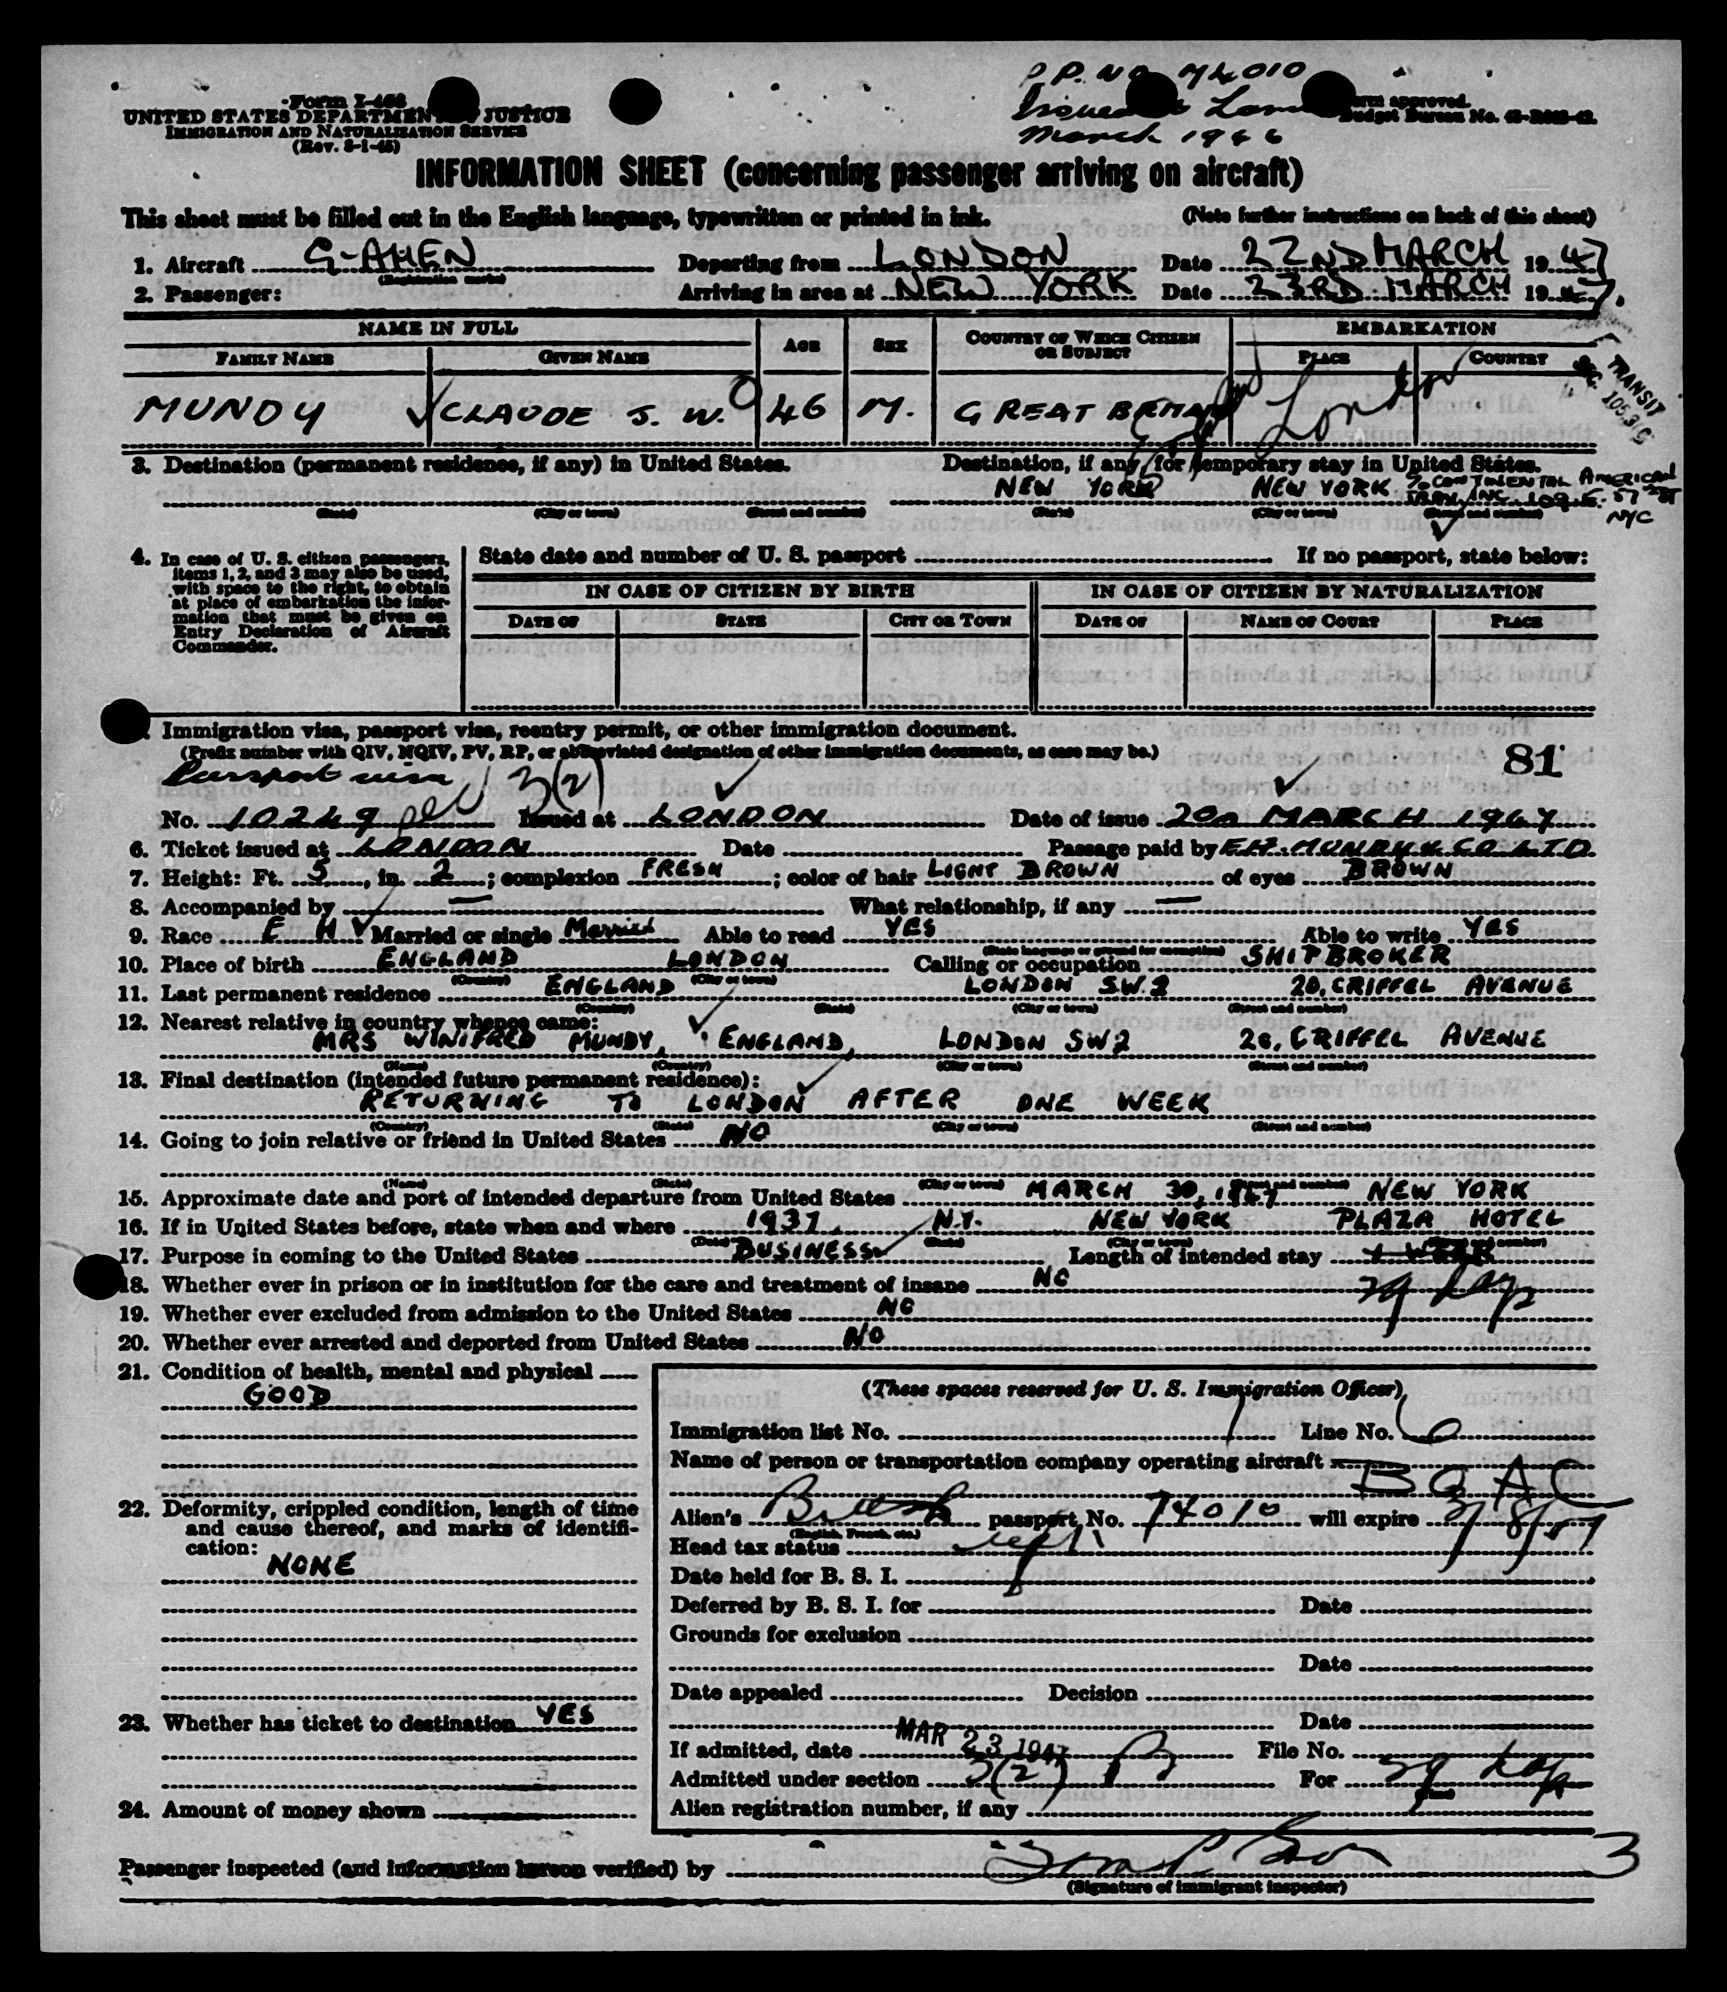 P.P. No 74010
Form I-466
UNITED STATES DEPARTMENT JUSTICE
IMMIGRATION AND NATURALIZATION SERVICE
(Rev. 3-1-45)
Issued London
March 1946
Form approved.
Budget Bureau No.
INFORMATION SHEET (concerning passenger arriving on aircraft)
This sheet must be filled out in the English language, typewritten or printed in ink. (Note further instructions on back of this sheet)
1. Aircraft G-AHEN Departing from LONDON Date 22ND MARCH 1947
(Registration marks)
2. Passenger: Arriving in area at NEW YORK Date 23RD MARCH 1947.
NAME IN FULL AGE SEX COUNTRY OF WHICH CITIZEN OR SUBJECT EMBARKATION
FAMILY NAME GIVEN NAME PLACE COUNTRY
TRANSIT
MUNDY CLAUDE J. W. 46 M. GREAT BRITAIN London
3. Destination (permanent residence, if any) in United States. Destination, if any, for temporary stay in United States.
NEW YORK NEW YORK c/o CONTINENTAL AMERICAN
INC. 109 E. 57TH ST
NYC
(State) (City or town) (Street and number) (State) (City or town) (Street and number)
4. In case of U. S. citizen passengers, items 1, 2, and 3 may also be used, with space to the right, to obtain at place of embarkation the information that must be given on Entry Declaration of Aircraft Commander.
State date and number of U. S. passport If no passport, state below:
IN CASE OF CITIZEN BY BIRTH IN CASE OF CITIZEN BY NATURALIZATION
DATE OF STATE CITY OR TOWN DATE OF NAME OF COURT PLACE
Immigration visa, passport visa, reentry permit, or other immigration document.
(Prefix number with QIV, NQIV, PV, RP, or abbreviated designation of other immigration documents, as case may be.)
81
Passport visa 3(2)
No. 10249 Issued at LONDON Date of issue 20th MARCH 1947
6. Ticket issued at LONDON Date Passage paid by E.H. MUNDY & CO LTD.
7. Height: Ft. 5, in. 2; complexion FRESH; color of hair LIGHT BROWN of eyes BROWN
8. Accompanied by — What relationship, if any —
9. Race E H Married or single Married Able to read YES Able to write YES
(State language or ground for exemption)
10. Place of birth ENGLAND LONDON Calling or occupation SHIPBROKER
(Country) (City or town)
11. Last permanent residence ENGLAND LONDON S.W.2 20, CRIFFEL AVENUE
(Country) (State) (City or town) (Street and number)
12. Nearest relative in country whence came:
MRS WINIFRED MUNDY, ENGLAND, LONDON SW2 20, CRIFFEL AVENUE
(Name) (Country) (City or town) (Street and number)
13. Final destination (intended future permanent residence):
RETURNING TO LONDON AFTER ONE WEEK
(Country) (State) (City or town) (Street and number)
14. Going to join relative or friend in United States NO
(Name) (State) (City or town) (Street and number)
15. Approximate date and port of intended departure from United States MARCH 30, 1947 NEW YORK
16. If in United States before, state when and where 1937, N.Y. NEW YORK PLAZA HOTEL
(Date) (State) (City or town) (Street and number)
17. Purpose in coming to the United States BUSINESS Length of intended stay 1 WEEK
29 days
18. Whether ever in prison or in institution for the care and treatment of insane NO
19. Whether ever excluded from admission to the United States NO
20. Whether ever arrested and deported from United States NO
21. Condition of health, mental and physical
GOOD
22. Deformity, crippled condition, length of time and cause thereof, and marks of identification:
NONE
23. Whether has ticket to destination YES
24. Amount of money shown
(These spaces reserved for U. S. Immigration Officer)
Immigration list No. 1 Line No. 6
Name of person or transportation company operating aircraft
BOAC
Alien's British passport No. 74010 will expire
(English, French, etc.)
Head tax status
Date held for B. S. I.
Deferred by B. S. I. for Date
Grounds for exclusion
Date
Date appealed Decision
Date
If admitted, date MAR 23 1947 File No.
Admitted under section 3(2) B For 29 days
Alien registration number, if any
Passenger inspected (and information hereon verified) by 3
(Signature of immigrant inspector)